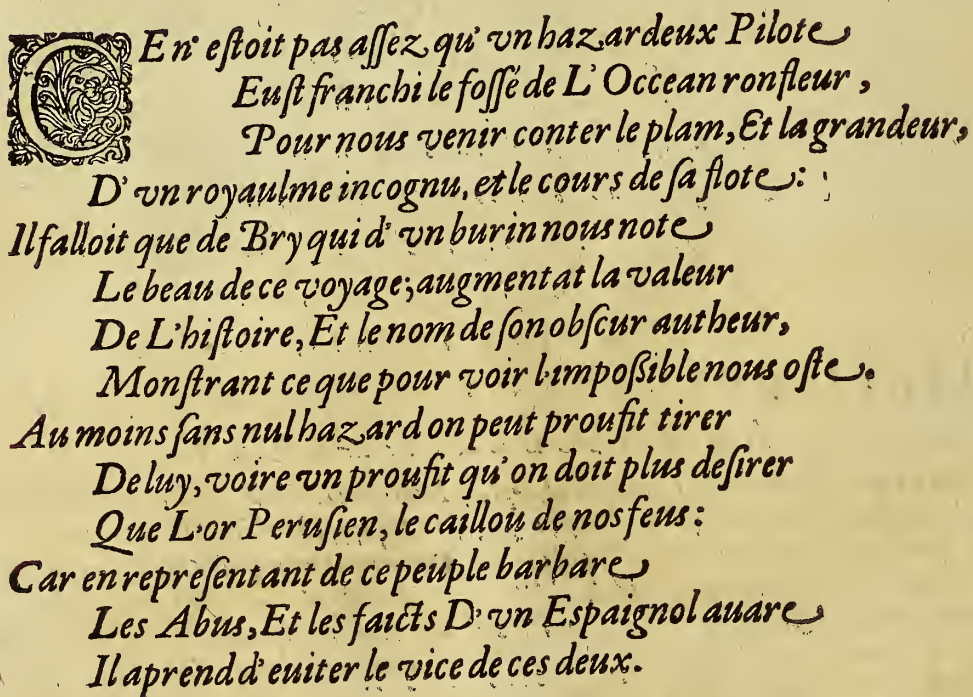 CE n' eſtoit pas aſſez qu' vn hazardeux Pilote
Euſt franchi le foſſé de L' Occean ronfleur,
Pour nous venir conter le plam, Et la grandeur,
D' vn royaulme incognu, et le cours de ſa flote:
Il falloit que de Bry qui d' vn burin nous note
Le beau de ce voyage; augmentat la valeur
De L'hiſtoire, Et le nom de ſon obſcur autheur,
Monſtrant ce que pour voir l'impoßible nous oſte.
Au moins ſans nul hazard on peut proufit tirer
De luy, voire vn proufit qu' on doit plus deſirer
Que L'or Peruſien, le caillou de nos feus:
Car en repreſentant de ce peuple barbare
Les Abus, Et les faicts D' vn Espaignol auare
Il aprend d' euiter le vice de ces deux.